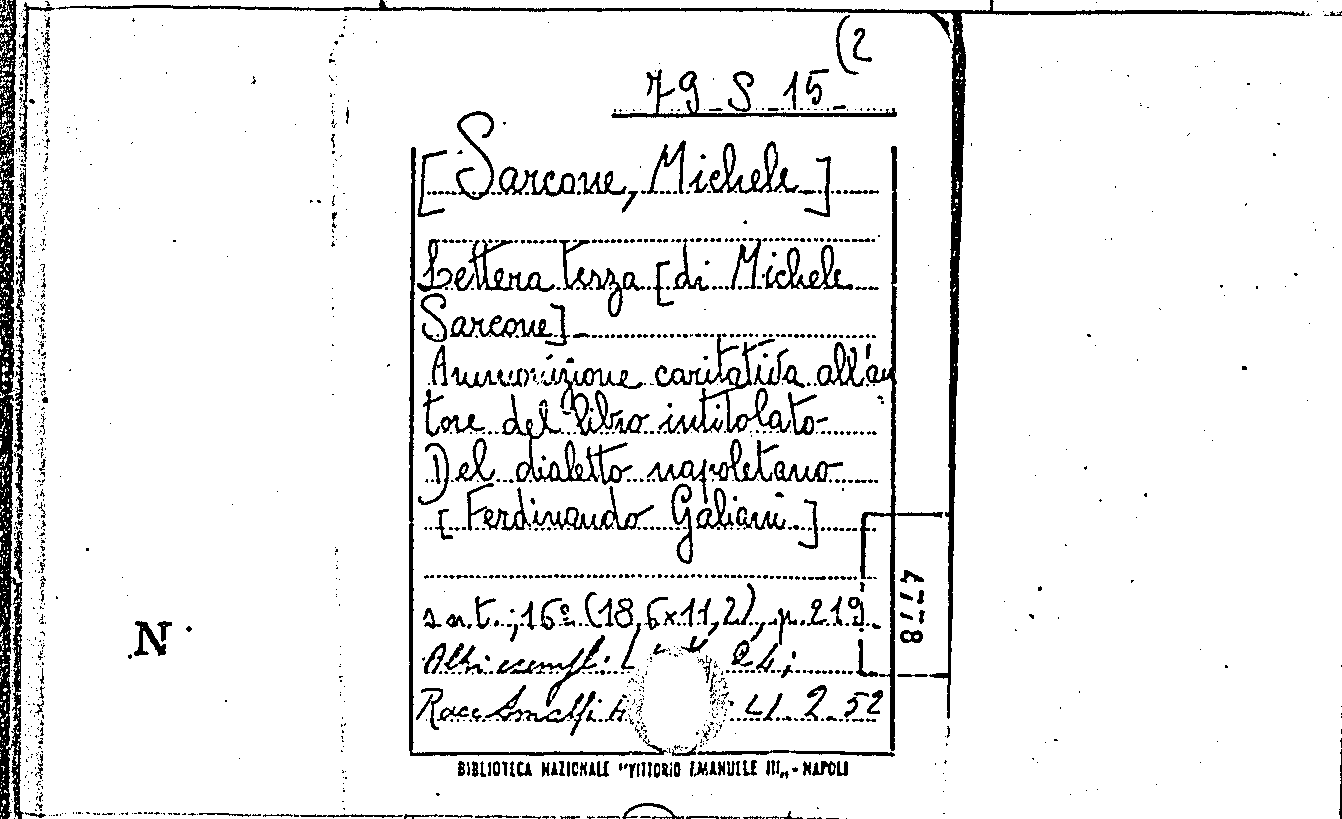 (2
79_S_15_
[Sarcone, Michele]
Lettera terza [di Michele
Sarcone]_
Ammonizione caritativa all'au
tore del libro intitolato
Del dialetto napoletano
[Ferdinando Galiani.]
s.n.t.; 16º (18,6x11,2), p. 219.
Altri esempl: L 24;
Racc Amalfi : LI. 2. 52
BIBLIOTECA NAZIONALE "VITTORIO EMANUELE III„ - NAPOLI
N